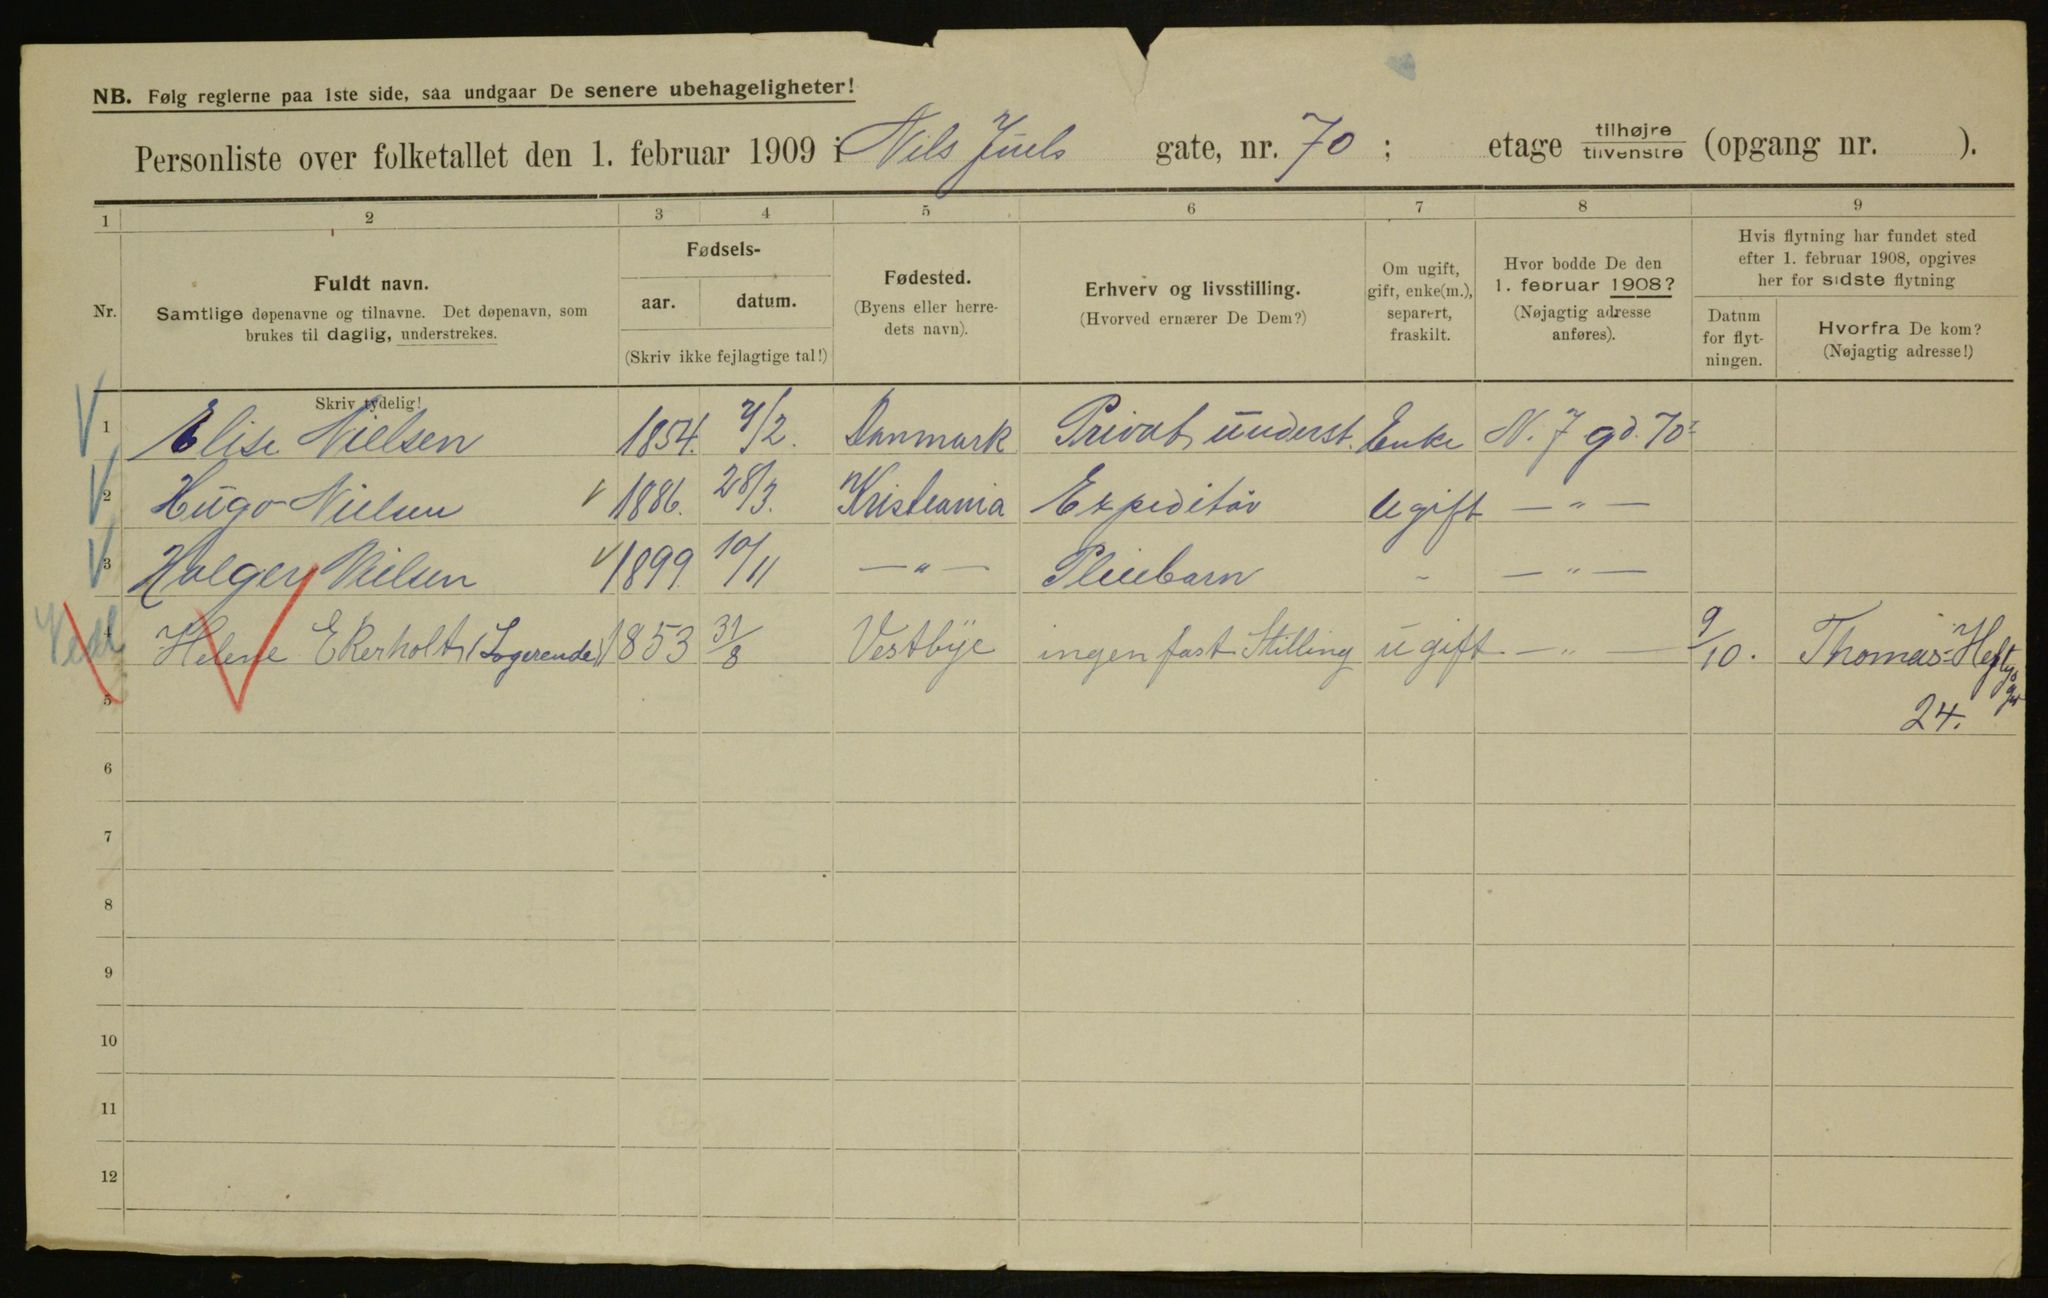 NB. Følg reglerne paa 1ste side, saa undgaar De senere ubehageligheter!
Personliste over folketallet den 1. februar 1909 i Nils Juels gate, nr. 70 ; etage tilhøjre tilvenstre (opgang nr. ).
1 2 3 4 5 6 7 8 9
Nr.
Fuldt navn.
Samtlige døpenavne og tilnavne. Det døpenavn, som
brukes til daglig, understrekes.
Skriv tydelig!
Fødsels-
aar. datum.
(Skriv ikke fejlagtige tal!)
Fødested.
(Byens eller herre-
dets navn).
Erhverv og livsstilling.
(Hvorved ernærer De Dem?)
Om ugift,
gift, enke(m.),
separert,
fraskilt.
Hvor bodde De den
1. februar 1908?
(Nøjagtig adresse
anføres).
Hvis flytning har fundet sted
efter 1. februar 1908, opgives
her for sidste flytning
Datum
for flyt-
ningen.
Hvorfra De kom?
(Nøjagtig adresse!)
1 Elise Nielsen 1854. 7/2. Danmark Privat underst. Enke N. J gd. 70
2 Hugo Nielsen 1886. 28/3. Kristiania Expeditør Ugift — " —
3 Holger Nielsen 1899. 10/11 — " — Pleiebarn - — " —
4 Helene Ekerholt (Logerende) 1853 31/8 Vestbye ingen fast Stilling ugift — " — 9/10. Thomas Heftyes gt
24.
5
6
7
8
9
10
11
12